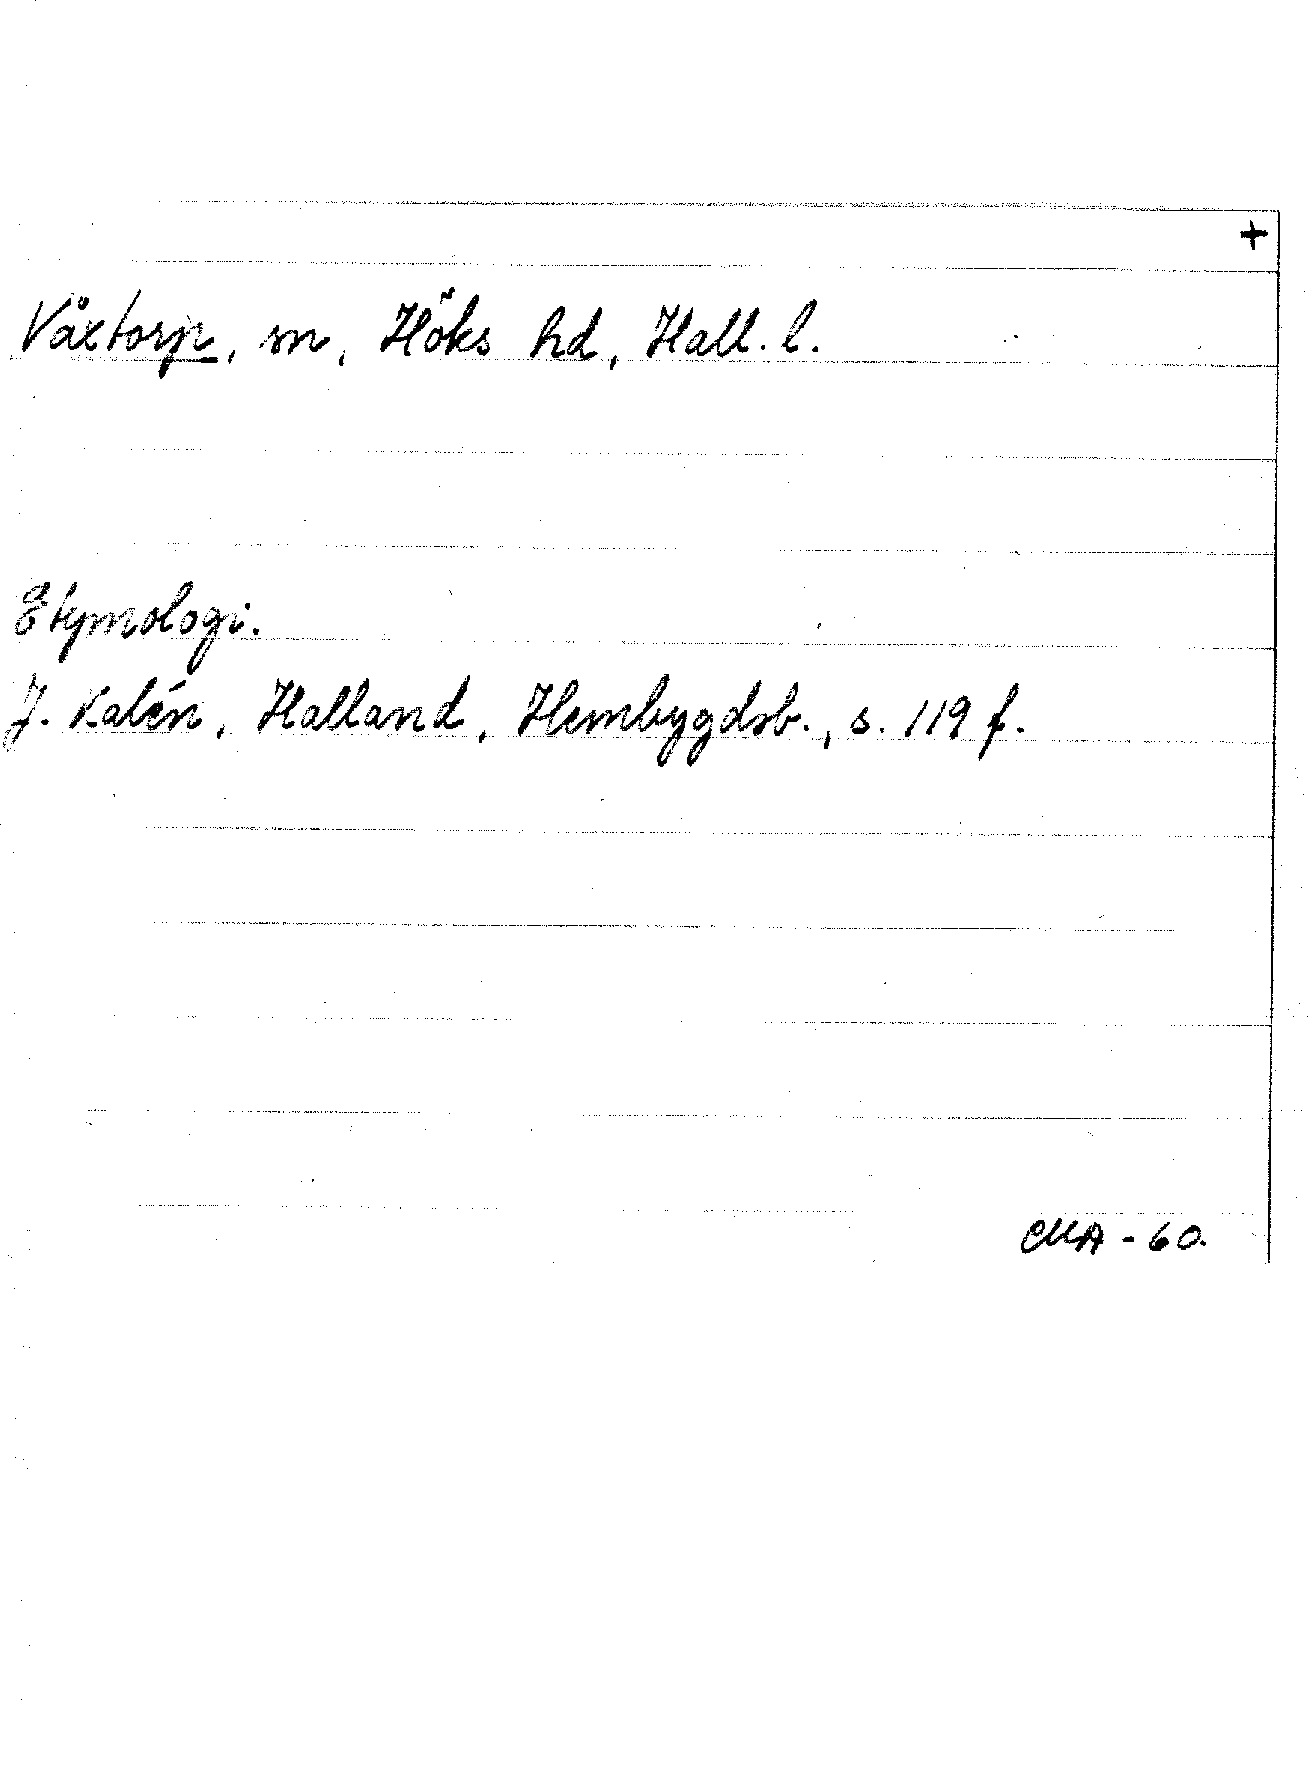 +
Våxtorp, sn, Höks hd, Hall. l.
Etymologi.
J. Kalén, Halland, Hembygdsb., s. 119 f.
CMA - 60.